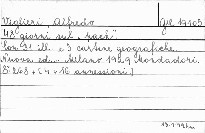 Viglieri, Alfredo
48 giorni sul "pack"
Con 91 ill. e 3 cartine geografiche.
Nuova ed. Milano 1929 Mondadori.
8: 268 + (4 + 16 annessioni)